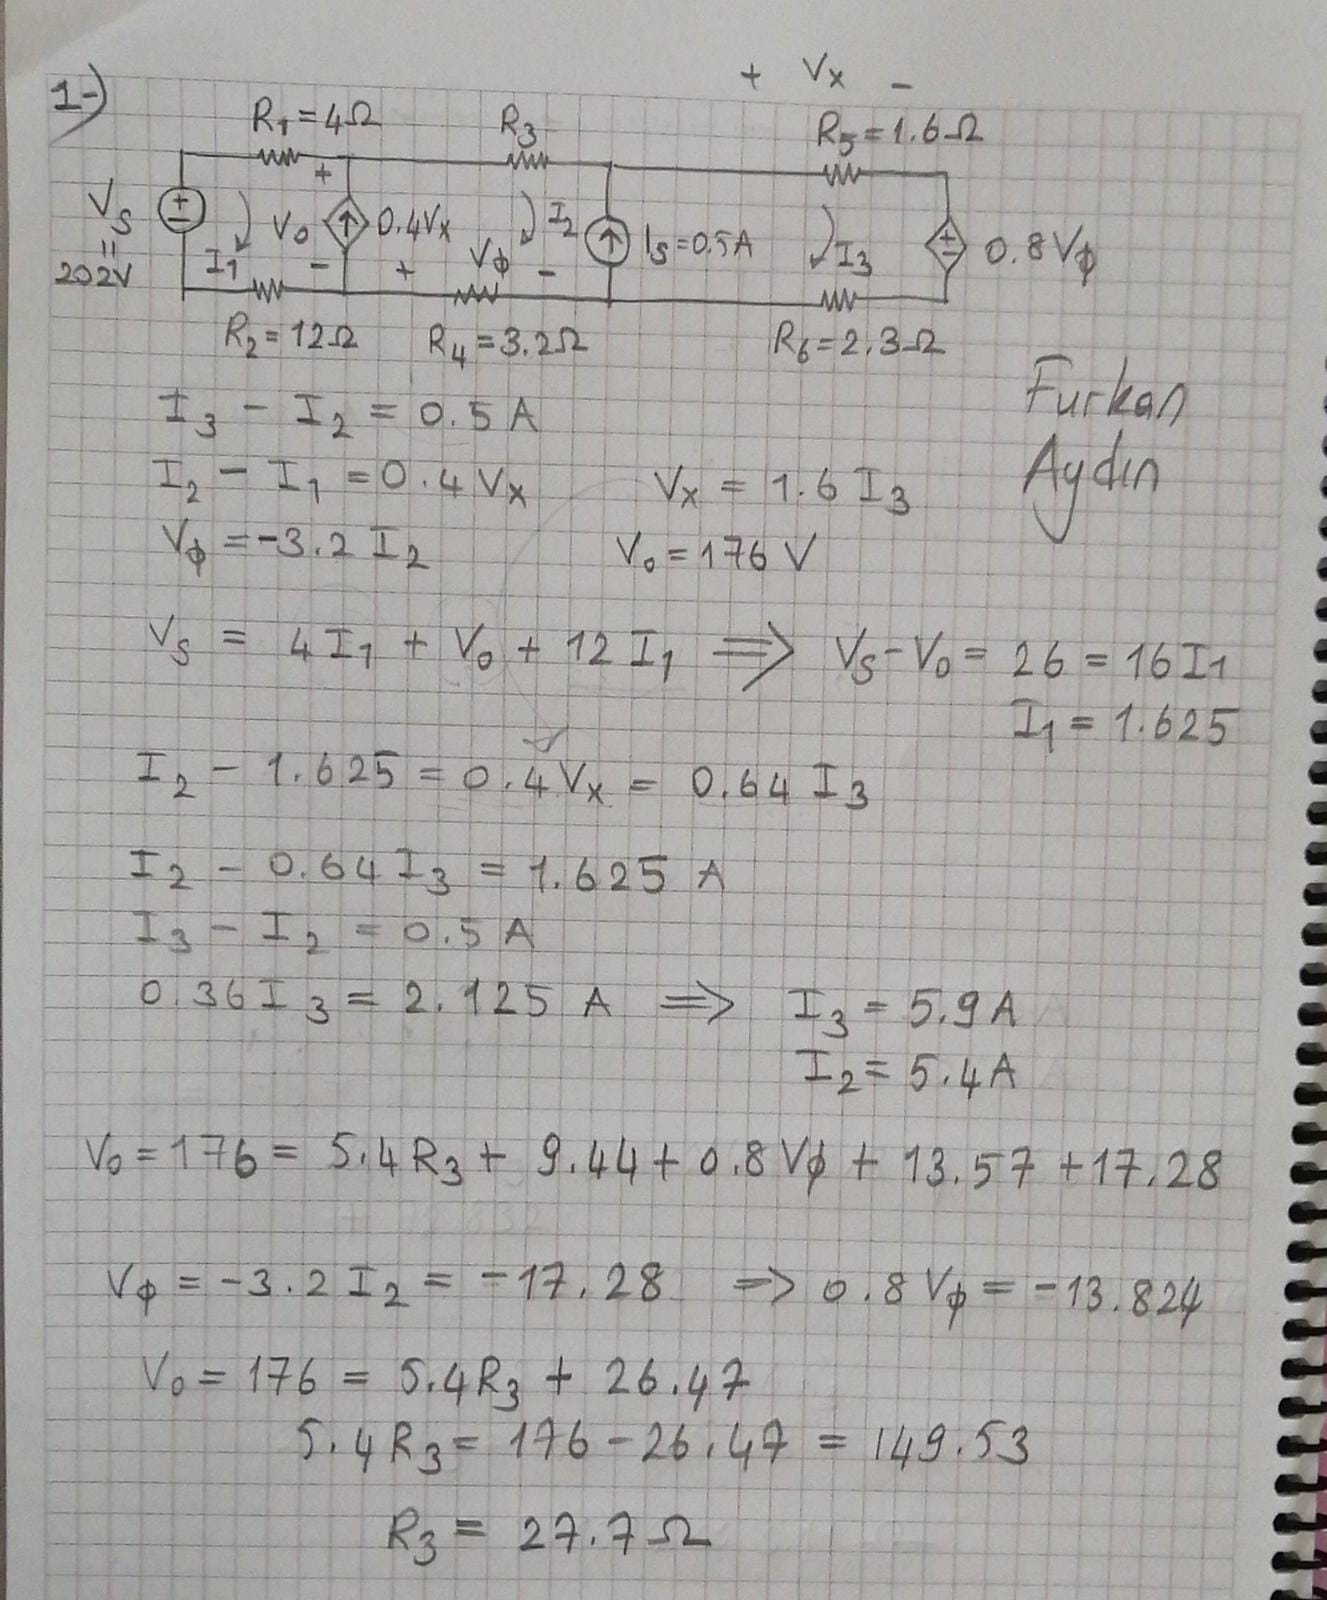 1-)
+ Vx -
R1=4Ω R3 R5=1.6Ω
VS = 202V I1 + V0 - 0.4Vx + Vϕ - I2 Is=0.5A I3 0.8Vϕ
R2=12Ω R4=3.2Ω R6=2.3Ω
I3 - I2 = 0.5 A
Furkan
Aydın
I2 - I1 = 0.4 Vx Vx = 1.6 I3
Vϕ = -3.2 I2 V0 = 176 V
VS = 4I1 + V0 + 12 I1 => VS - V0 = 26 = 16I1
I1 = 1.625
I2 - 1.625 = 0.4 Vx = 0.64 I3
I2 - 0.64 I3 = 1.625 A
I3 - I2 = 0.5 A
0.36 I3 = 2.125 A => I3 = 5.9 A
I2 = 5.4 A
V0 = 176 = 5.4 R3 + 9.44 + 0.8 Vϕ + 13.57 + 17.28
Vϕ = -3.2 I2 = -17.28 => 0.8 Vϕ = -13.824
V0 = 176 = 5.4R3 + 26.47
5.4 R3 = 176 - 26.47 = 149.53
R3 = 27.7 Ω